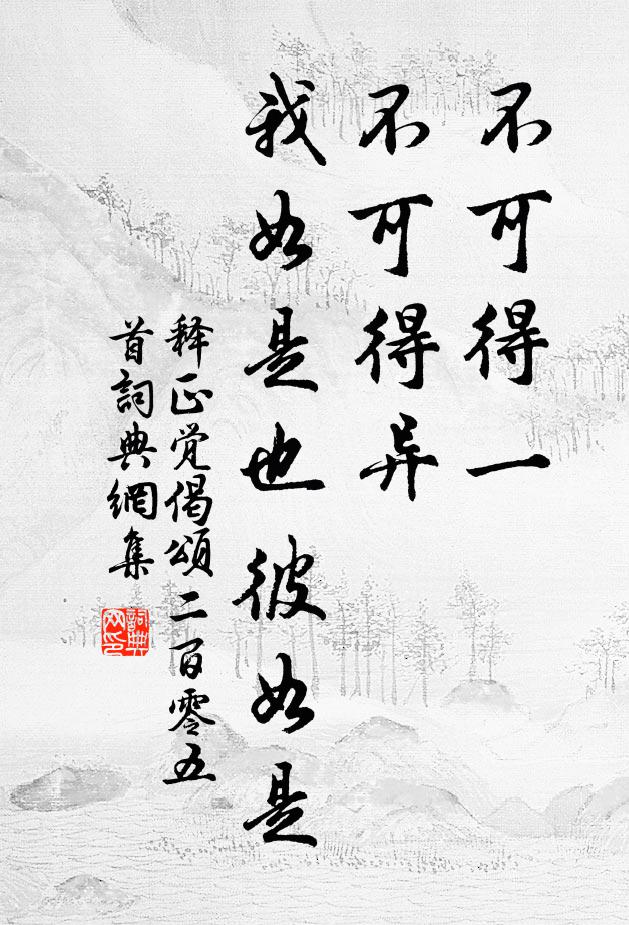 不可得一
不可得异
我如是也彼如是
释正觉偈颂二百零五
首詞典網集
詞典
网印